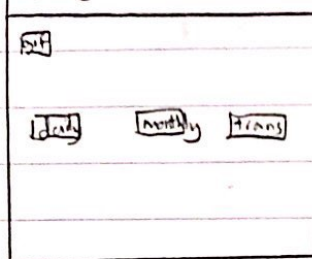 daily monthly trans